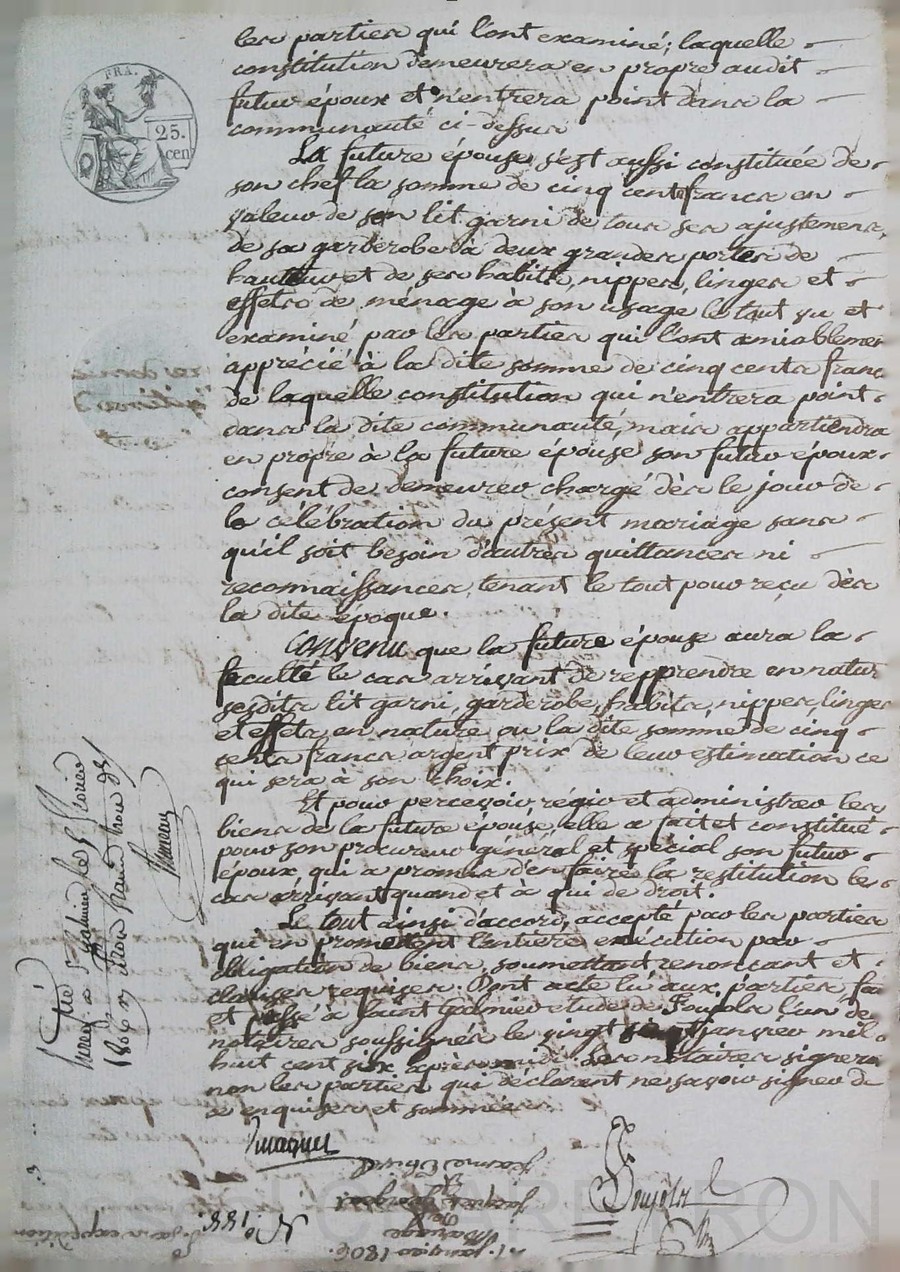 FRA.
25.
cen
les parties qui l'ont examiné; laquelle
constitution demeurera en propre audit
futur époux et n'entrera point dans la
communauté ci-dessus
La future épouse s'est aussi constituée de
son chef la somme de cinq cents francs en
valeur de son lit garni de tous ses ajustemens,
de sa garderobe à deux grandes portes de
hauteur et de ses habits, nippes, linges et
effets de ménage à son usage le tout vu et
examiné par les parties qui l'ont amiablemen
apprécié à la dite somme de cinq cents francs
de laquelle constitution qui n'entrera point
dans la dite communauté, mais appartiendra
en propre à la future épouse son futur époux
consent de demeurer chargé dès le jour de
la célébration du présent mariage sans
qu'il soit besoin d'autres quittances ni
reconnaissances, tenant le tout pour reçu dès
la dite époque.
Convenu que la future épouse aura la
faculté le cas arrivant de repprendre en natur
sesdits lit garni, garderobe, habits, nippes, linges
et effets en nature ou la dite somme de cinq
cents francs argent prix de leur estimation ce
qui sera à son choix.
Et pour percevoir, régir et administrer les
biens de la future épouse, elle a fait et constitué
pour son procureur général et spécial son futur
époux, qui a promis d'en faire la restitution le
cas arrivant quand et à qui de droit.
Le tout ainsi d'accord, accepté par les parties
qui en promettent l'entière exécution par
obligation de biens, soumettant renonçant et
clauses requises. Dont acte lu aux parties fai
et passé à Saint Galmier étude de Poujols l'un de
notaires soussignés le vingt janvier mil
huit cent six après midi. Les notaires signero
non les parties qui déclarent ne savoir signer de
ce enquises et sommées
Poujols
No. 188.
mariage
janvier 1806
expédition